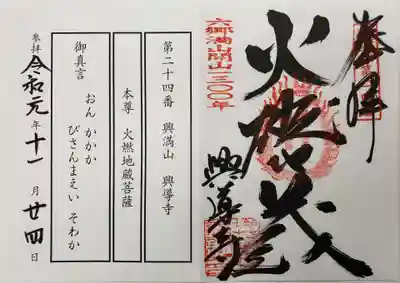 奉拝
六郷満山開山一三〇〇年
火燃地蔵
興導寺
第二十四番 興満山 興導寺
本尊 火燃地蔵菩薩
御真言
おん かかか
びさんまえい そわか
参拝 令和元年 十一月 廿四日